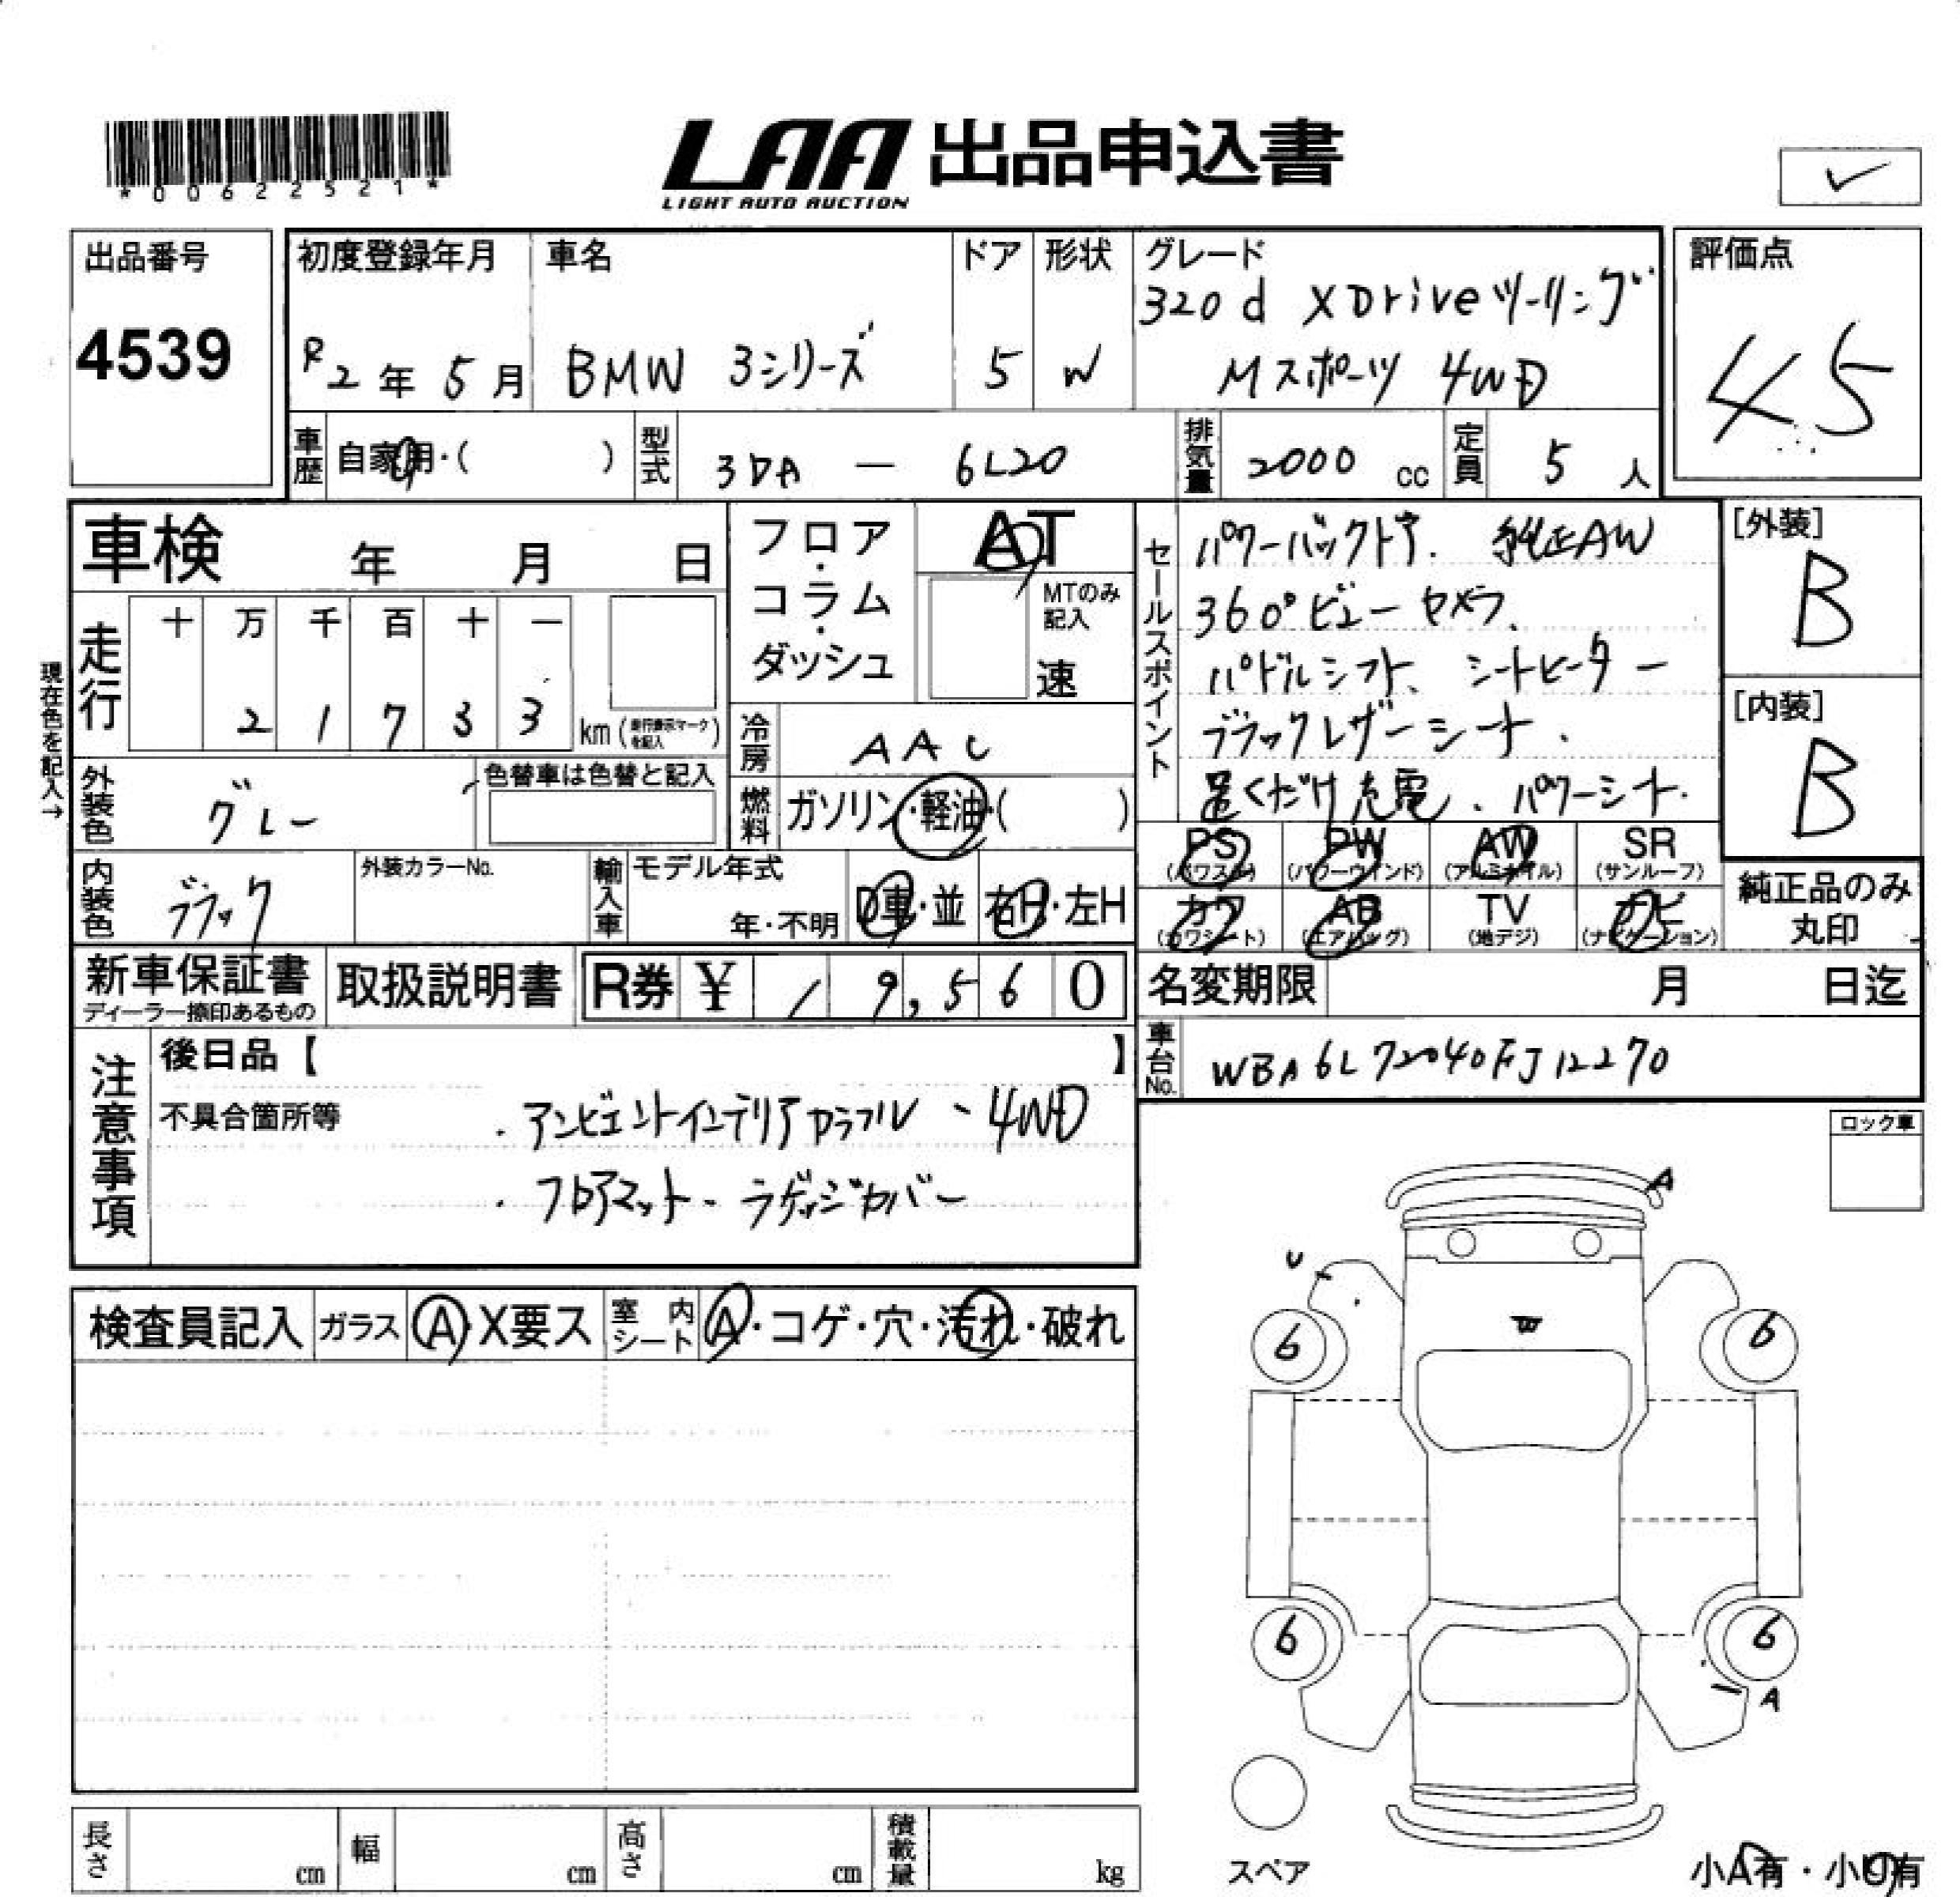 *00622521*
LAA 出品申込書
LIGHT AUTO AUCTION
出品番号
4539
初度登録年月
R2年5月
車名
BMW 3シリーズ
ドア
5
形状
W
グレード
320d XDriveツーリング
Mスポーツ 4WD
評価点
4.5
車歴 自家用・( )
型式 3DA — 6L20
排気量 2000 cc
定員 5 人
車検 年 月 日
走行
十 万 千 百 十 一
2 1 7 3 3 km (走行表示マークを記入)
現在色を記入→
外装色 グレー
色替車は色替と記入
内装色 ブラック
外装カラーNo.
フロア・コラム・ダッシュ
AT
MTのみ記入
速
冷房 AAC
燃料 ガソリン・軽油・( )
輸入車 モデル年式
年・不明 D車・並 右H・左H
セールスポイント
パワーバックドア. 純正AW
360°ビューカメラ.
パドルシフト、シートヒーター
ブラックレザーシート.
置くだけ充電、パワーシート.
[外装]
B
[内装]
B
PS (パワステ) PW (パワーウインド) AW (アルミホイル) SR (サンルーフ)
カワ (カワシート) AB (エアバッグ) TV (地デジ) ナビ (ナビゲーション)
純正品のみ丸印
新車保証書
ディーラー捺印あるもの
取扱説明書
R券 ¥ 19,560
名変期限 月 日迄
車台No. WBA6L72040FJ12270
注意事項
後日品【 】
不具合箇所等
・アンビエントインテリアカラフル ・4WD
・フロアマット・ラゲッジカバー
ロック車
検査員記入 ガラス A・X要ス 室内シート A・コゲ・穴・汚れ・破れ
A
U
W
6 6
6 6
A
スペア
長さ cm 幅 cm 高さ cm 積載量 kg
小A有・小U有